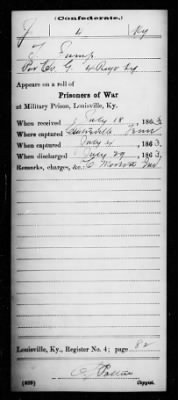 (Confederate.)
J 4 Ky
J. Jump
Co. G 4 Ky
Appears on a roll of
Prisoners of War
at Military Prison, Louisville, Ky.
When received July 18, 1863
Where captured Tenn
When captured July 4, 1863
When discharged July 29, 1863
Remarks, charges, &c. C Morton Ind
Louisville, Ky., Register No. 4; page 82
Copyist.